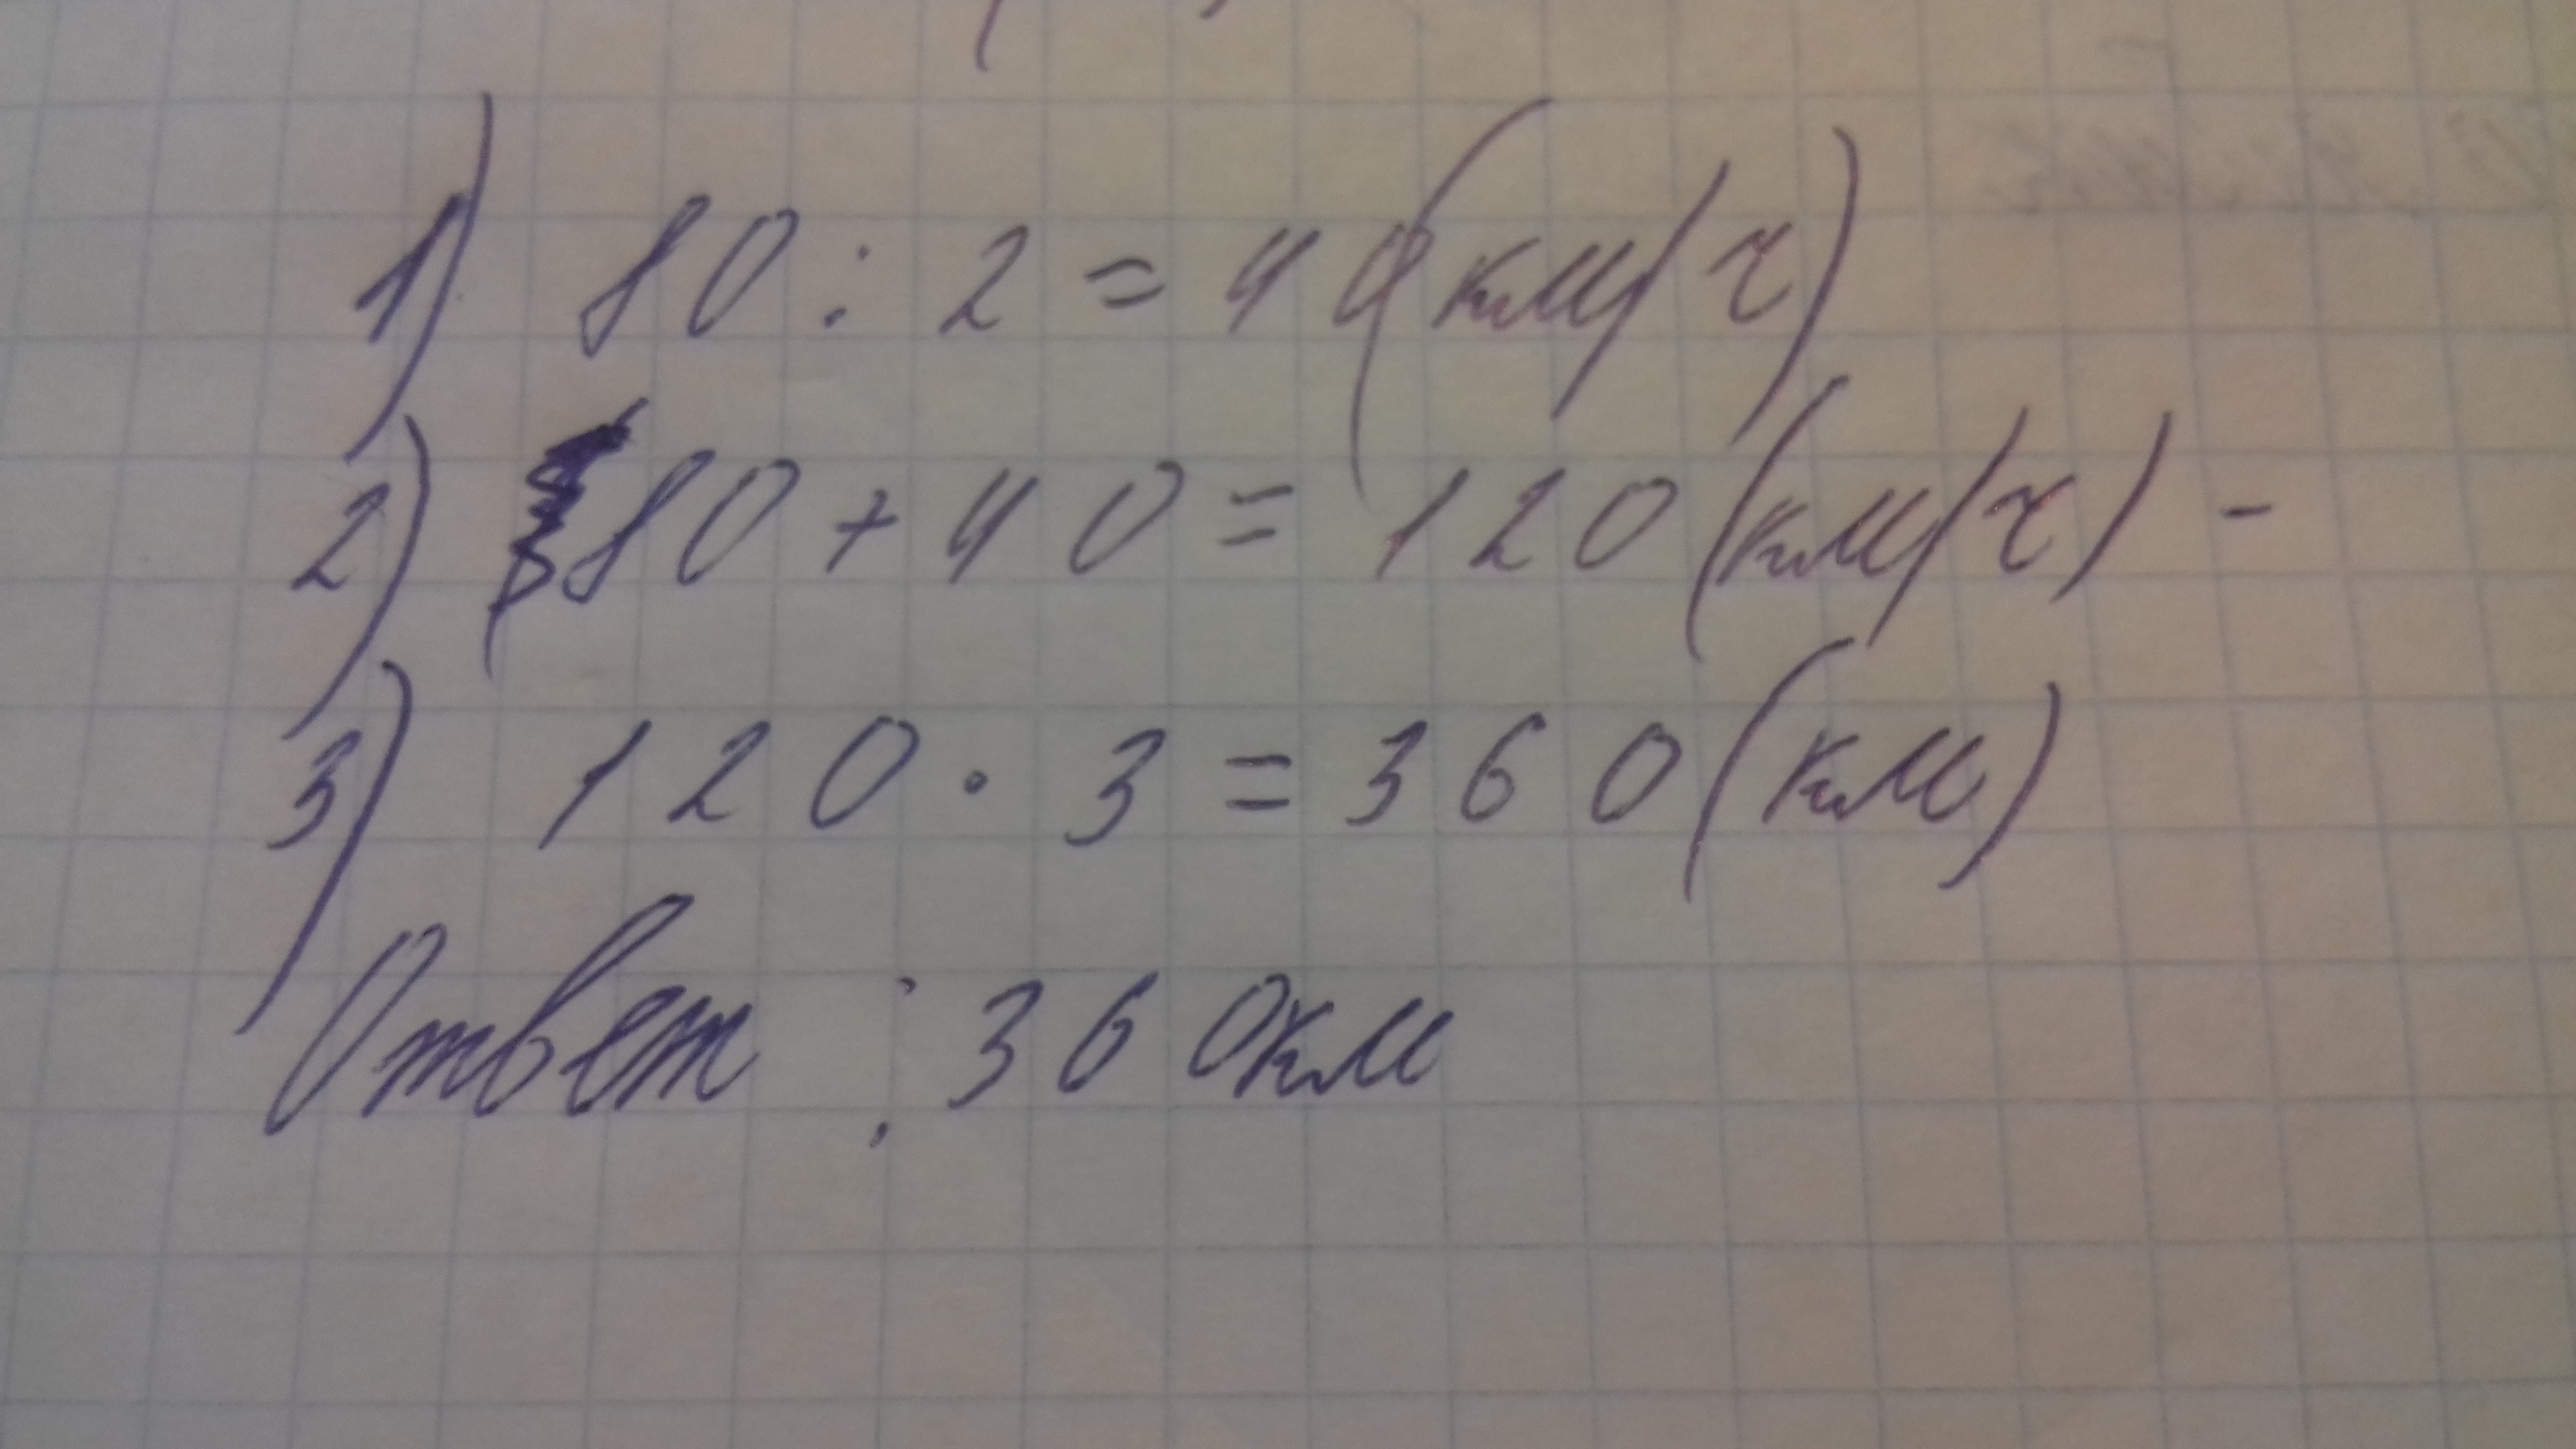 1) 80 : 2 = 40 (км/ч)
2) 80 + 40 = 120 (км/ч) -
3) 120 · 3 = 360 (км)
Ответ : 360км